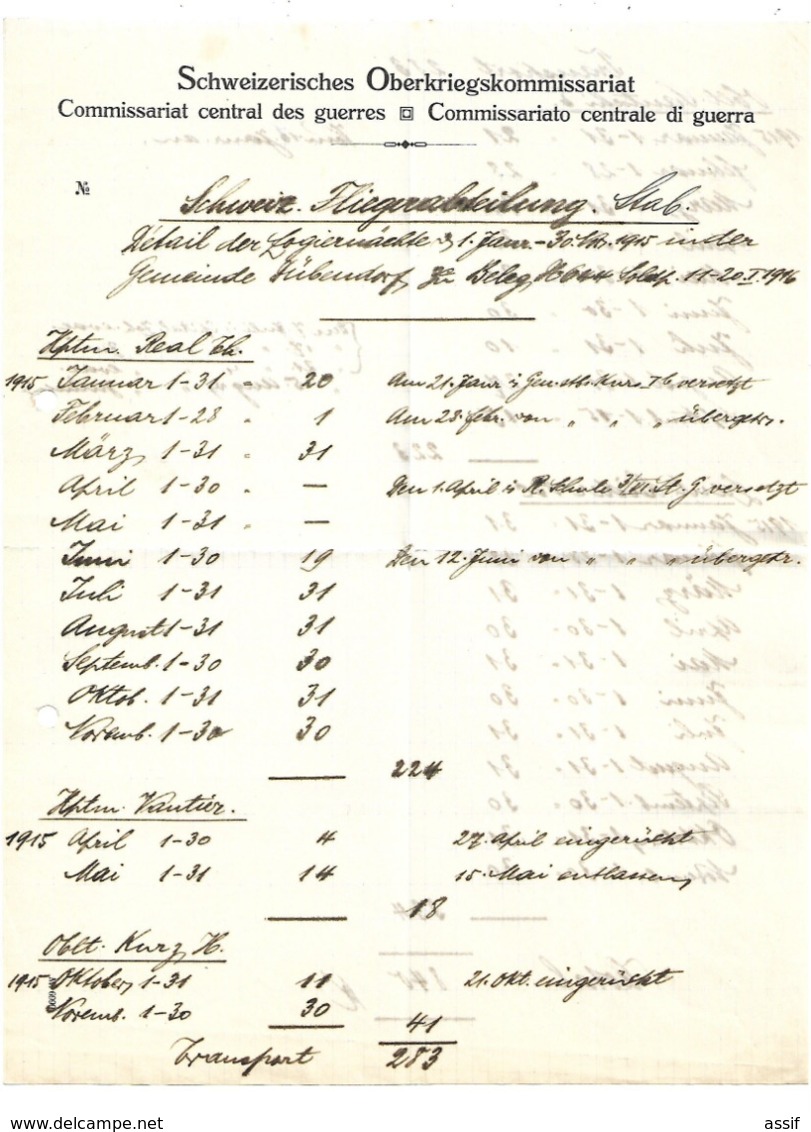 Schweizerisches Oberkriegskommissariat
Commissariat central des guerres Commissariato centrale di guerra
№
Schweiz. Fliegerabteilung. Stab.
Détail der Logiernächte 1. Janr. - 30. 1915 in der
Gemeinde Dübendorf, zu Beleg 11-20.I.1916
Hptm. Real Th.
1915 Januar 1-31 " 20 Am 21. Janr i. Gen.stb. Kurs I b versetzt
Februar 1-28 " 1 Am 28. Febr. von " " " übergetr.
März 1-31 " 31
April 1-30 " — Den 1. April i. R. Schule 3/VI. St. G. versetzt
Mai 1-31 " —
Juni 1-30 19 Den 12. Juni von " " " übergetr.
Juli 1-31 31
August 1-31 31
Septemb. 1-30 30
Oktob. 1-31 31
Novemb. 1-30 30
224
Hptm. Vautier.
1915 April 1-30 4 27. April eingerückt
Mai 1-31 14 15. Mai entlassen
18
Oblt. Kurz H.
1915 Oktober 1-31 11 21. Okt. eingerückt
Novemb. 1-30 30
41
Transport 283
www.delcampe.net
assif